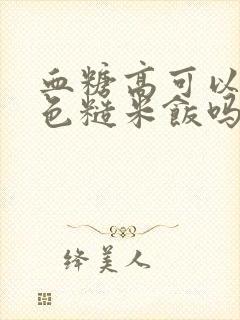 血糖高可以
色糙米飯吗
绛美人